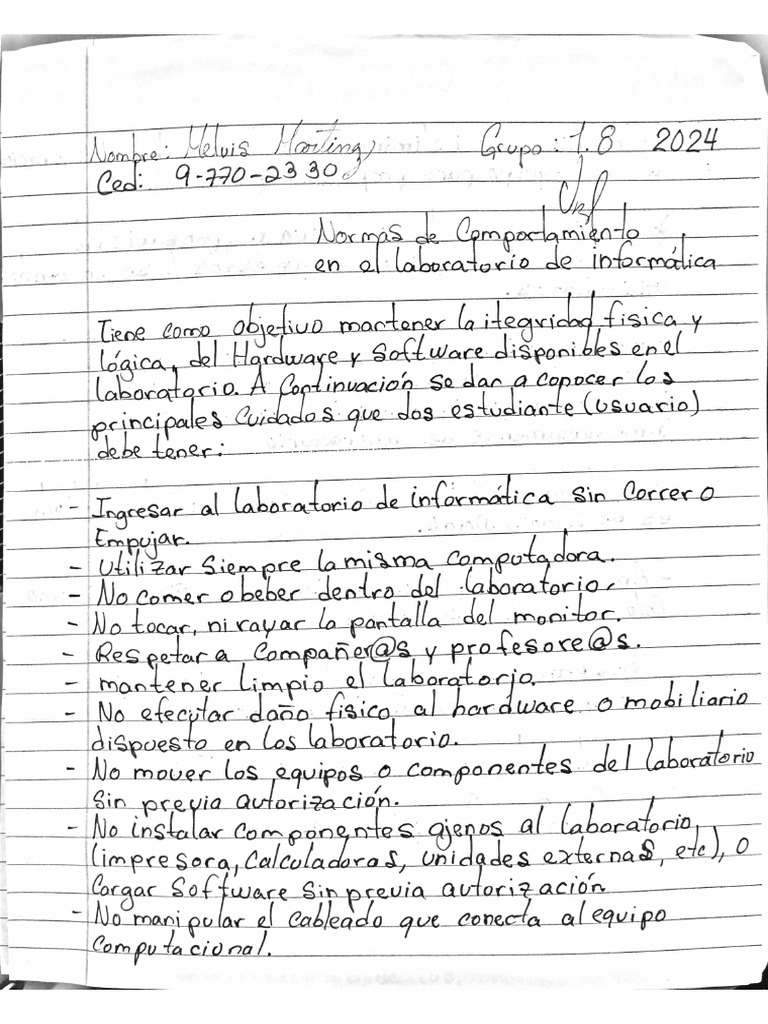 Nombre: Melvis Martinez Grupo: 1.8 2024
Ced: 9-770-2330
Normas de Comportamiento
en el laboratorio de informática
Tiene como objetivo mantener la itegridad, fisica y
lógica, del Hardware y Software disponibles en el
laboratorio. A Continuación se dan a conocer los
principales Cuidados que dos estudiante (usuario)
debe tener:
- Ingresar al laboratorio de informática sin Correr o
Empujar.
- Utilizar Siempre la misma computadora.
- No comer o beber dentro del laboratorio.
- No tocar, ni rayar la pantalla del monitor.
- Respetar a Compañer@s y profesore@s.
- mantener limpio el laboratorio.
- No efecutar daño fisico al hardware o mobiliario
dispuesto en los laboratorio.
- No mover los equipos o componentes del laboratorio
Sin previa autorización.
- No instalar componentes ajenos al laboratorio
(impresora, Calculadoras, unidades externas, etc), o
Cargar Software Sin previa autorización
- No manipular el Cableado que conecta al equipo
Computacional.